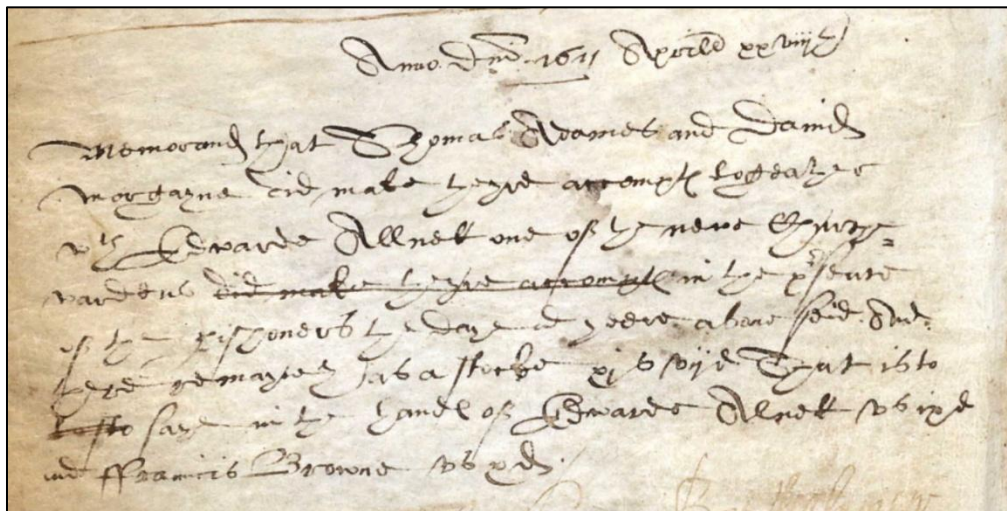 Anno dni 1611 Aprill xxviijth
Memorand that Thomas Adames and David
Morgayne did make theyre accompt togeather
wth Edwarde Allnett one of the newe Churche=
wardens did make theyre accompt in the psence
of the pishoners the daye & yeere above seid. And
there remayneth as a stocke xjs vijd That is to
to saye in the hands of Edwarde Alnett vs ixd
and ffrancis Browne vs xd.